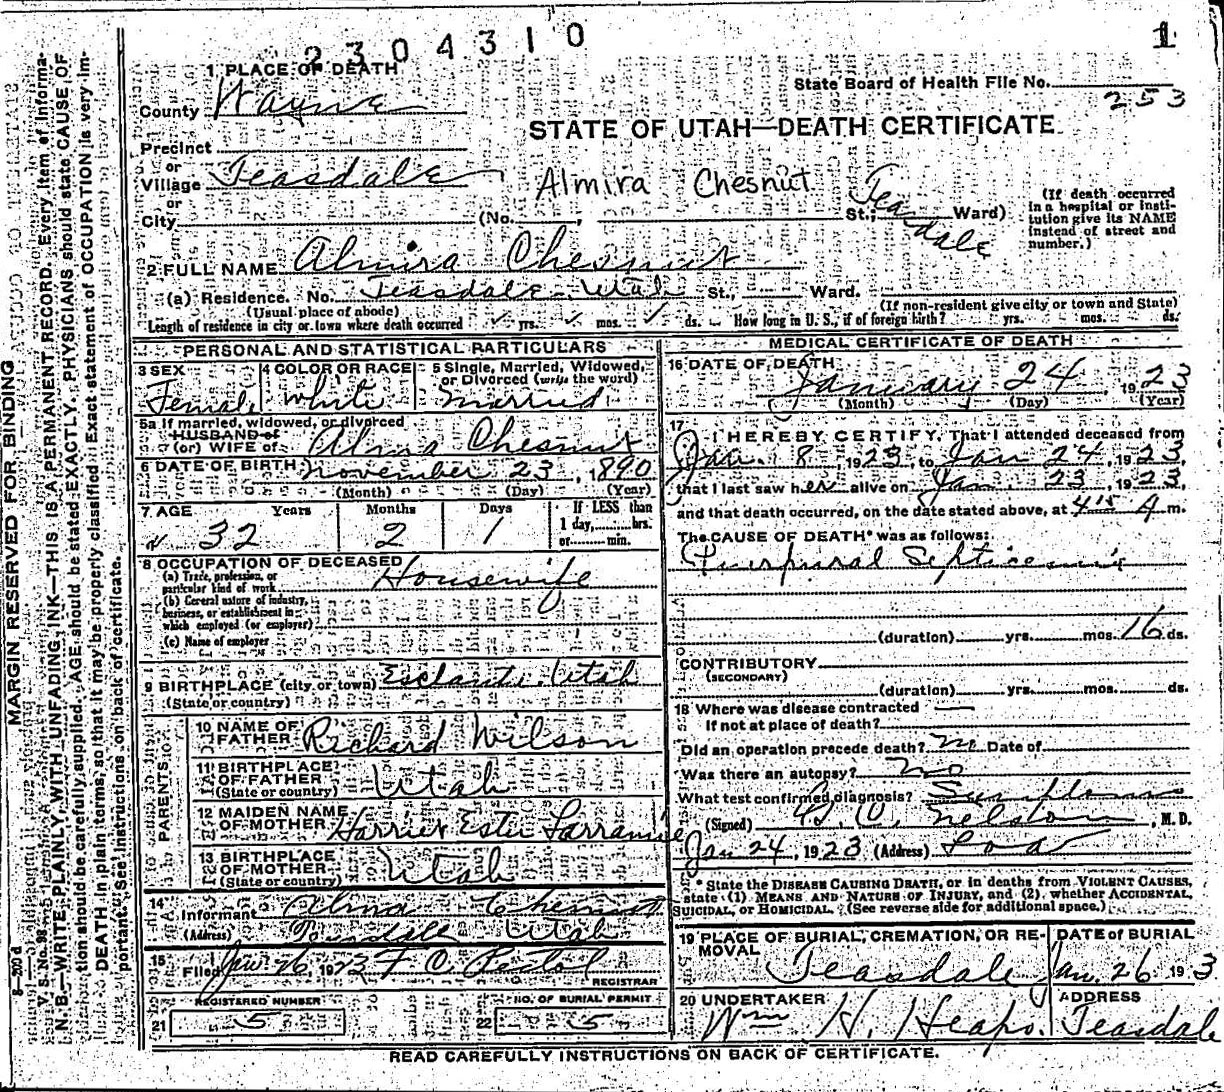 2304310
1
1 PLACE OF DEATH
State Board of Health File No. 253
County Wayne
STATE OF UTAH—DEATH CERTIFICATE
Precinct
or
Village Teasdale
Almira Chesnut Teasdale
or
City (No. , St.; Ward)
(If death occurred in a hospital or institution give its NAME instead of street and number.)
2 FULL NAME Almira Chesnut
(a) Residence. No. Teasdale Utah St., Ward.
(Usual place of abode) (If non-resident give city or town and State)
Length of residence in city or town where death occurred yrs. mos. ds. How long in U. S., if of foreign birth? yrs. mos. ds.
PERSONAL AND STATISTICAL PARTICULARS
3 SEX 4 COLOR OR RACE 5 Single, Married, Widowed, or Divorced (write the word)
Female White Married
5a If married, widowed, or divorced
HUSBAND of
(or) WIFE of Alma Chesnut
6 DATE OF BIRTH November 23, 1890
(Month) (Day) (Year)
7 AGE Years Months Days If LESS than
1 day,......hrs.
or......min.
32 2 1
8 OCCUPATION OF DECEASED
(a) Trade, profession, or
particular kind of work Housewife
(b) General nature of industry,
business, or establishment in
which employed (or employer)
(c) Name of employer
9 BIRTHPLACE (city or town) Esclante, Utah
(State or country)
PARENTS
10 NAME OF FATHER Richard Wilson
11 BIRTHPLACE OF FATHER Utah
(State or country)
12 MAIDEN NAME OF MOTHER Harriet Ester
13 BIRTHPLACE OF MOTHER Utah
(State or country)
14 Informant Alma Chesnut
(Address) Teasdale Utah
15 Filed Jan 26, 1923
REGISTRAR
REGISTERED NUMBER
21 5
NO. OF BURIAL PERMIT
22 5
MEDICAL CERTIFICATE OF DEATH
16 DATE OF DEATH
January 24 1923
(Month) (Day) (Year)
17 I HEREBY CERTIFY, That I attended deceased from
Jan. 8 1923, to Jan 24, 1923,
that I last saw her alive on Jan. 23 1923,
and that death occurred, on the date stated above, at 4 15 A m.
The CAUSE OF DEATH* was as follows:
Puerpural Septicemia
(duration) yrs. mos. 16 ds.
CONTRIBUTORY
(SECONDARY)
(duration) yrs. mos. ds.
18 Where was disease contracted —
If not at place of death?
Did an operation precede death? no Date of
Was there an autopsy? no
What test confirmed diagnosis? Symptoms
(Signed) , M. D.
Jan 24, 1923 (Address) Loa
* State the DISEASE CAUSING DEATH, or in deaths from VIOLENT CAUSES,
state (1) MEANS AND NATURE OF INJURY, and (2), whether ACCIDENTAL,
SUICIDAL, or HOMICIDAL. (See reverse side for additional space.)
19 PLACE OF BURIAL, CREMATION, OR REMOVAL DATE of BURIAL
Teasdale Jan. 26 193
20 UNDERTAKER ADDRESS
Wm H. Heaps. Teasdale
READ CAREFULLY INSTRUCTIONS ON BACK OF CERTIFICATE.
MARGIN RESERVED FOR BINDING
N. B.—WRITE PLAINLY, WITH UNFADING INK—THIS IS A PERMANENT RECORD. Every item of information should be carefully supplied. AGE should be stated EXACTLY. PHYSICIANS should state CAUSE OF DEATH in plain terms, so that it may be properly classified. Exact statement of OCCUPATION is very important. See instructions on back of certificate.